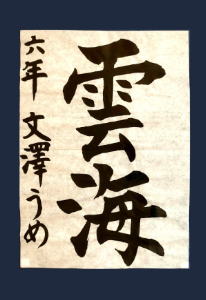 雲海
六年 文澤うめ